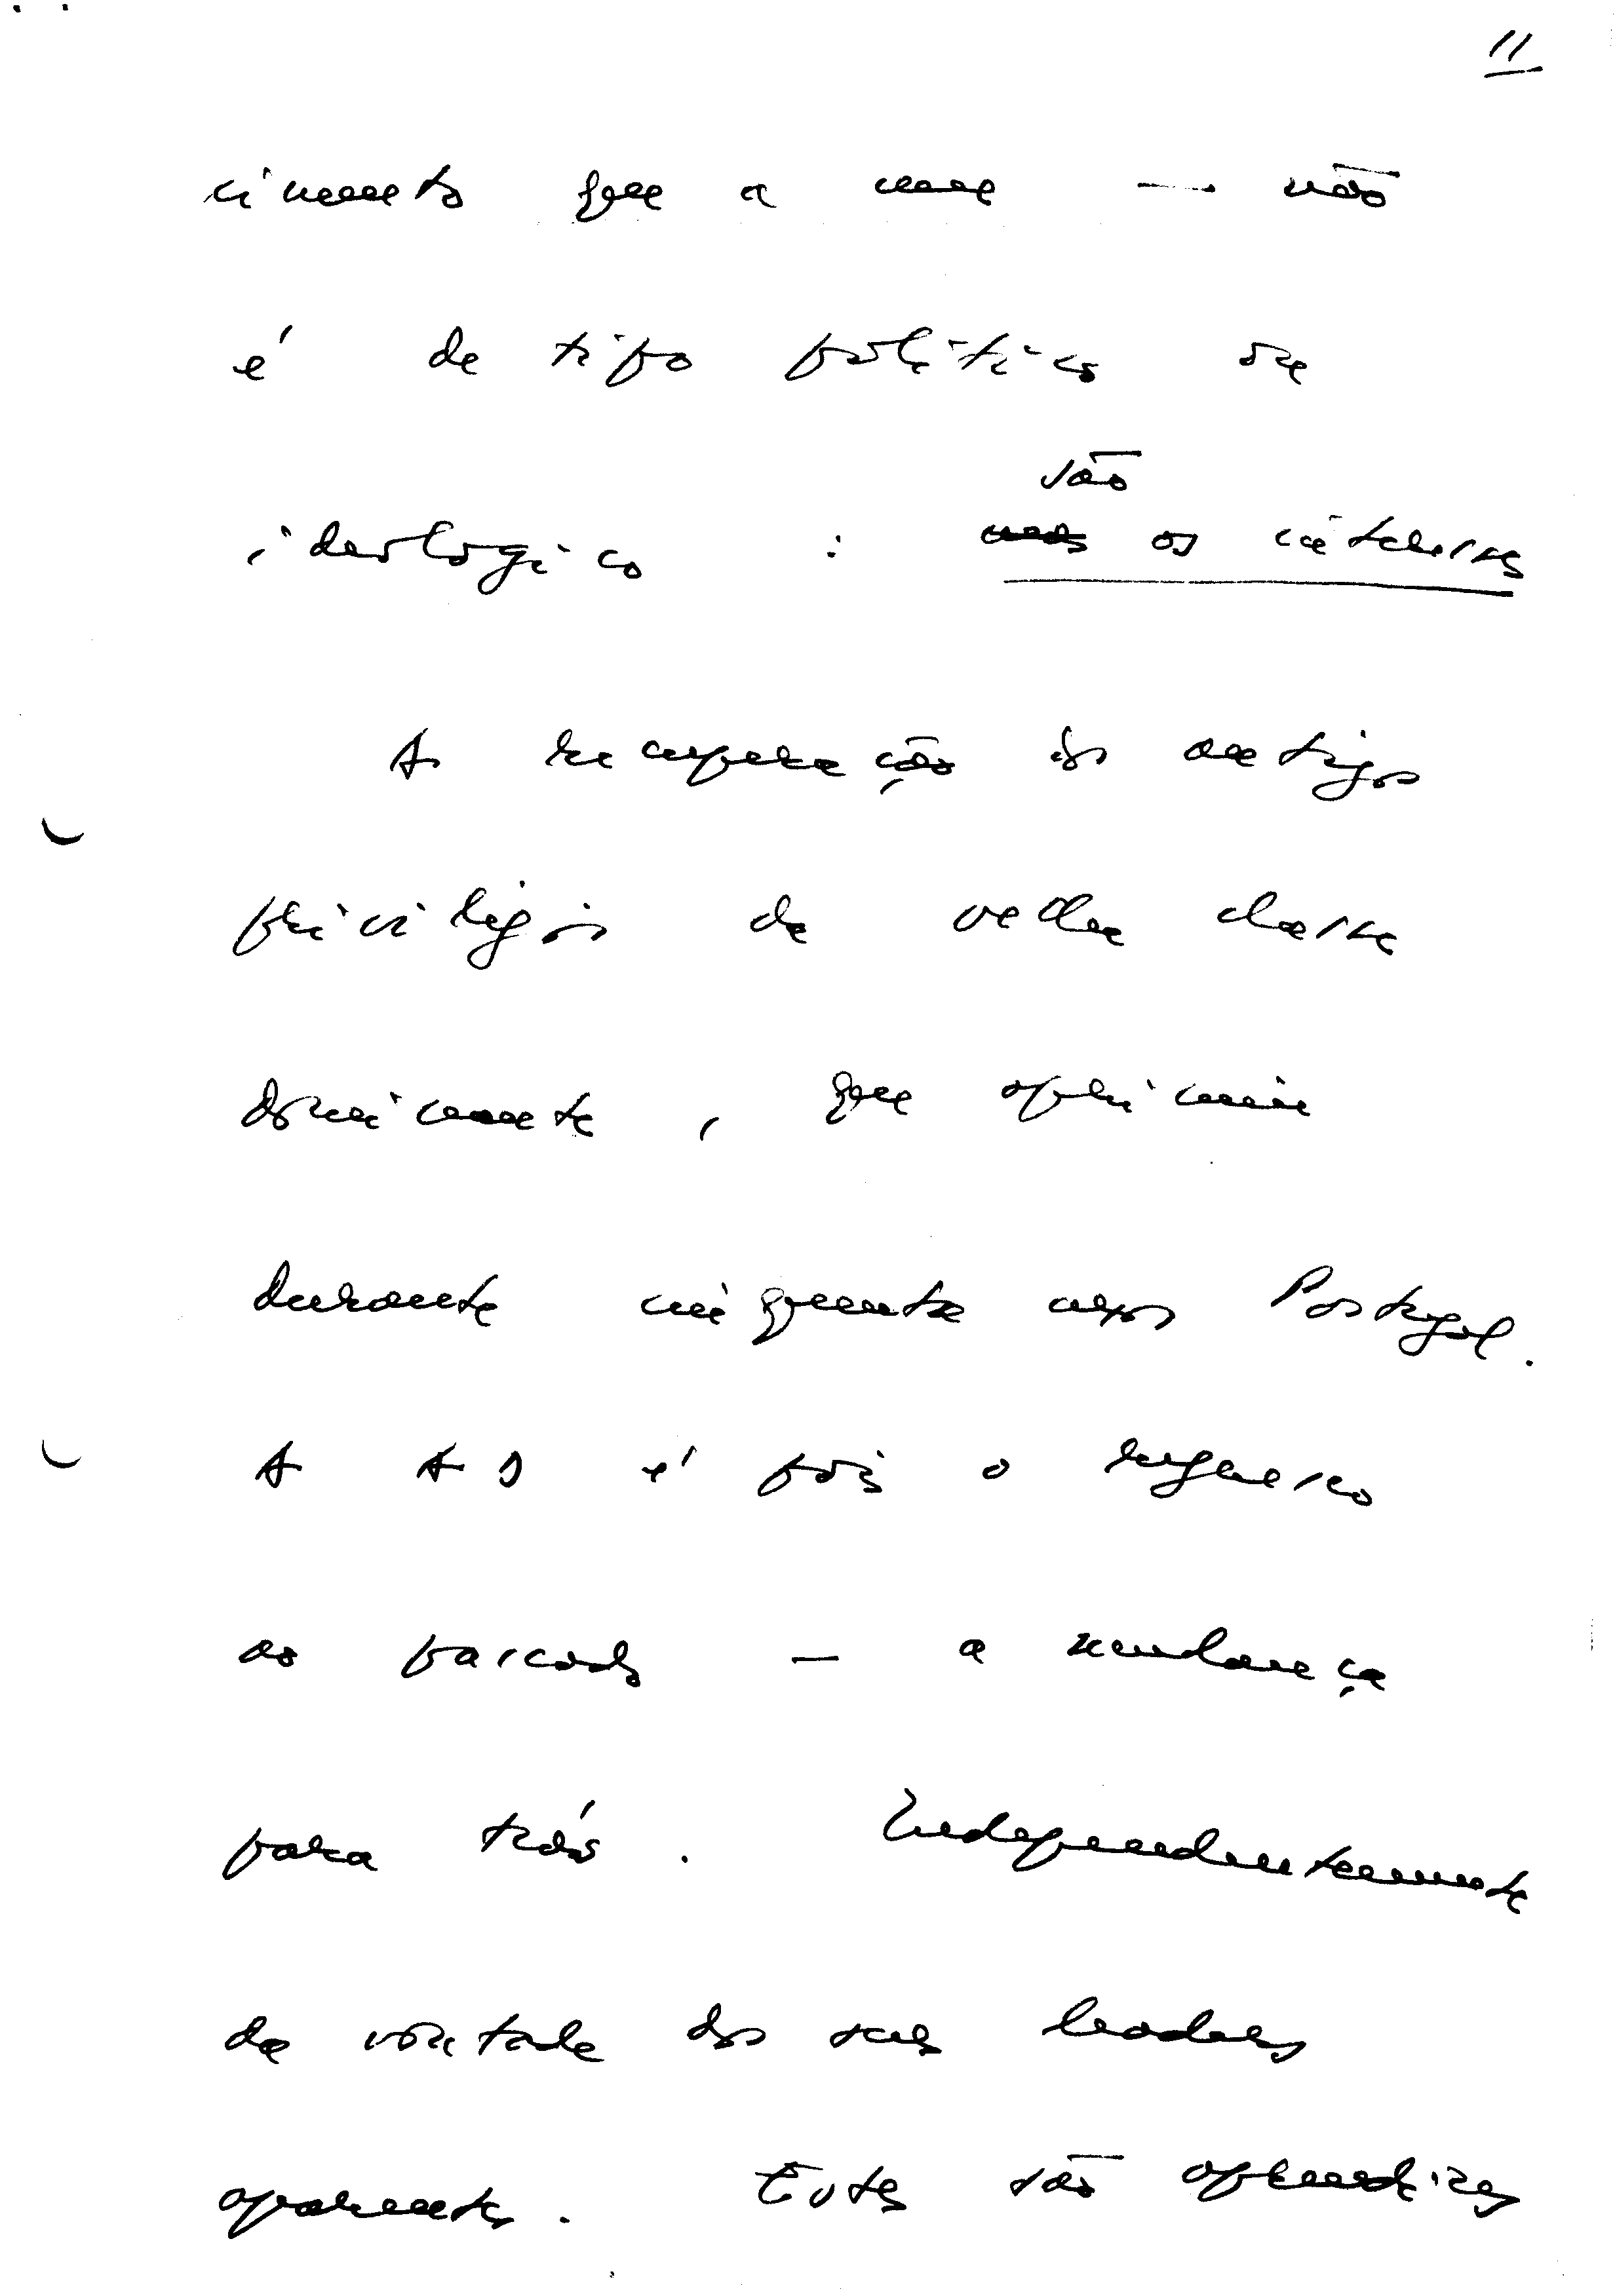 11
cimento que a une — não
é de tipo político ou
ideológico : são os interesses
A recuperação dos antigos
privilégios da velha classe
dominante, que oprimiu
durante cinquenta anos Portugal.
A AD é pois o regresso
ao passado — a mudança
para trás. Independentemente
da vontade dos seus leaders
aparentes. Estes são aprendizes